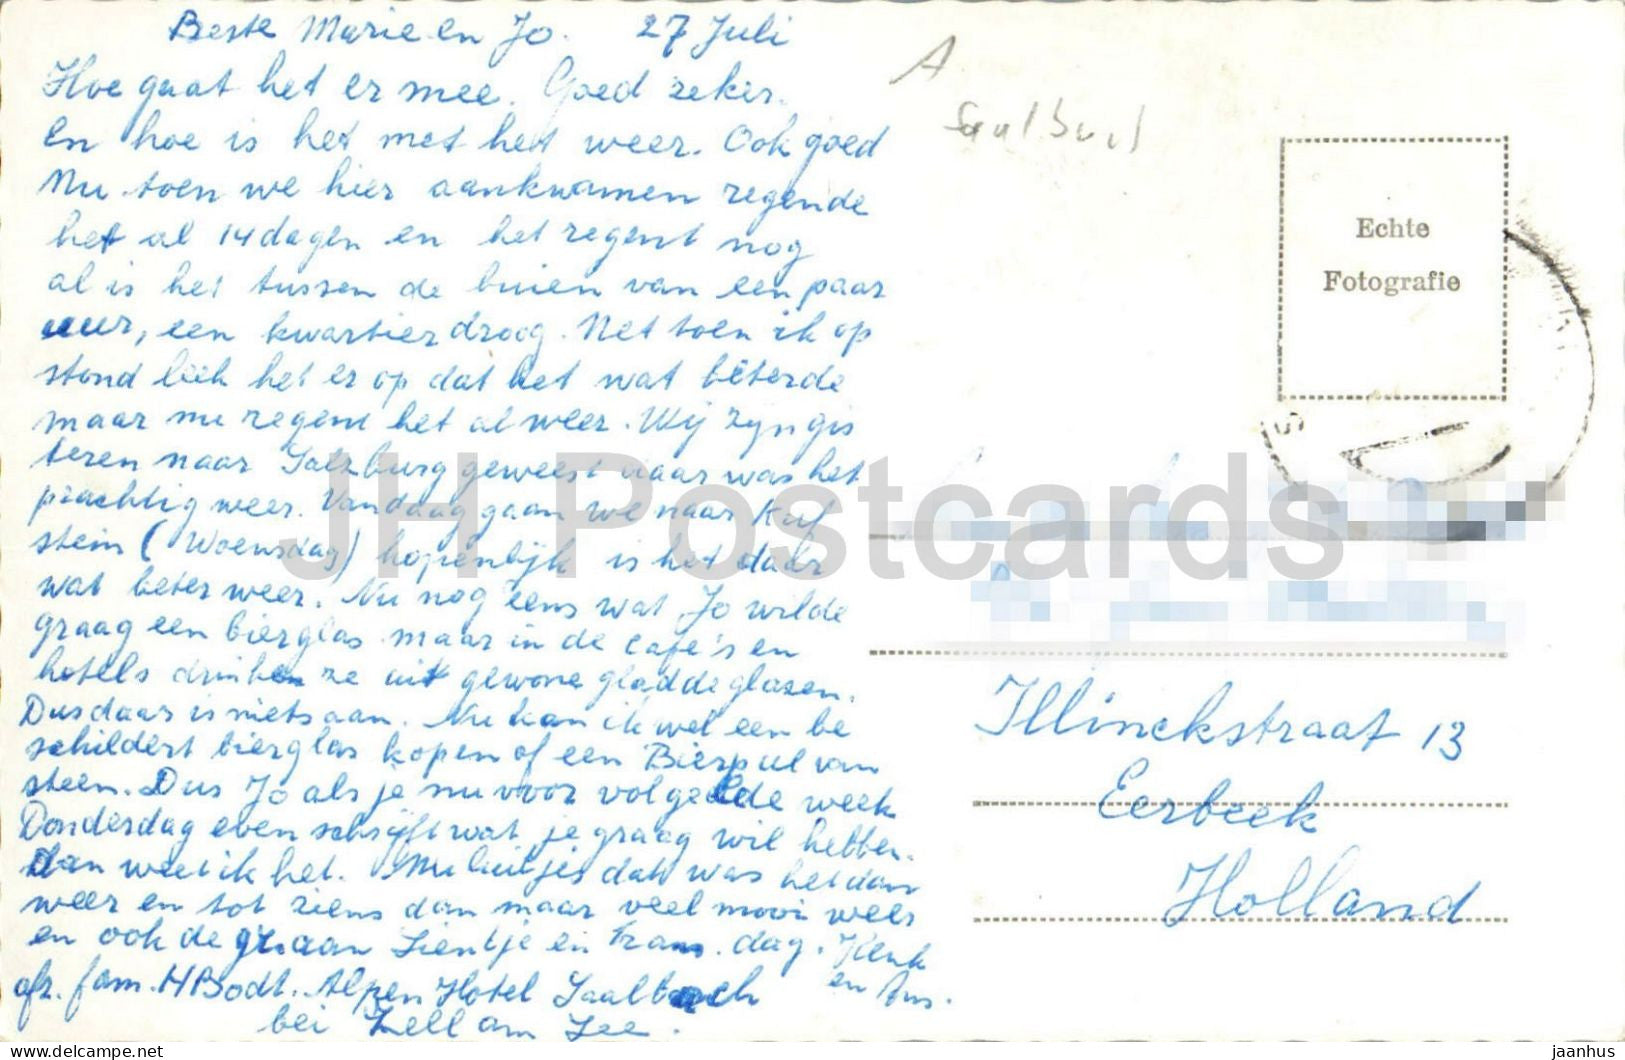 Beste Marie en Jo. 27 Juli
Hoe gaat het er mee. Goed zeker.
En hoe is het met het weer. Ook goed
Nu toen we hier aankwamen regende
het al 14 dagen en het regent nog
al is het tussen de buien van een paar
uur, een kwartier droog. Net toen ik op
stond leek het er op dat het wat beterde
maar nu regent het al weer. Wij zijn gis
teren naar Salzburg geweest daar was het
prachtig weer. Vandaag gaan we naar Kuf
stein (Woensdag) hopenlijk is het daar
wat beter weer. Nu nog eens wat Jo wilde
graag een bierglas maar in de café's en
hotels drinken ze uit gewone gladde glazen.
Dus daar is niets aan. Nu kan ik wel een be
schildert bierglas kopen of een Bierpul van
steen. Dus Jo als je nu voor volgende week
Donderdag even schrijft wat je graag wil hebben.
Dan weet ik het. Nu luitjes dat was het dan
weer en tot ziens dan maar veel mooi weer
en ook de gr. aan Sientje en Frans. dag. Henk
en Ans.
afz. fam. H Bodt. Alpen Hotel Saalbach
bei Zell am See.
A
Echte
Fotografie
Illinckstraat 13
Eerbeek
Holland
JH Postcards
delcampe.net
jaanhus